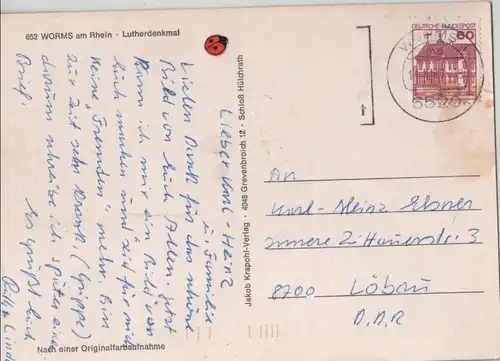 652 WORMS am Rhein · Lutherdenkmal
Lieber Karl-Heinz
u. Familie
Vielen Dank für das schöne
Bild von Euch Allen. Jetzt
kann ich mir ein Bild von
Euch machen und seid für mich
keine "Fremden" mehr. Bin
zur Zeit sehr krank (Grippe)
darum schreibe ich später einen
Brief.
Es grüßt Euch
Linde
Nach einer Originalfarbaufnahme
Jakob Krapohl-Verlag · 4048 Grevenbroich 12 · Schloß Hülchrath
DEUTSCHE BUNDESPOST
60
An
Karl-Heinz Elsner
Innere Zittauerstr. 3
8700 Löbau
D.D.R